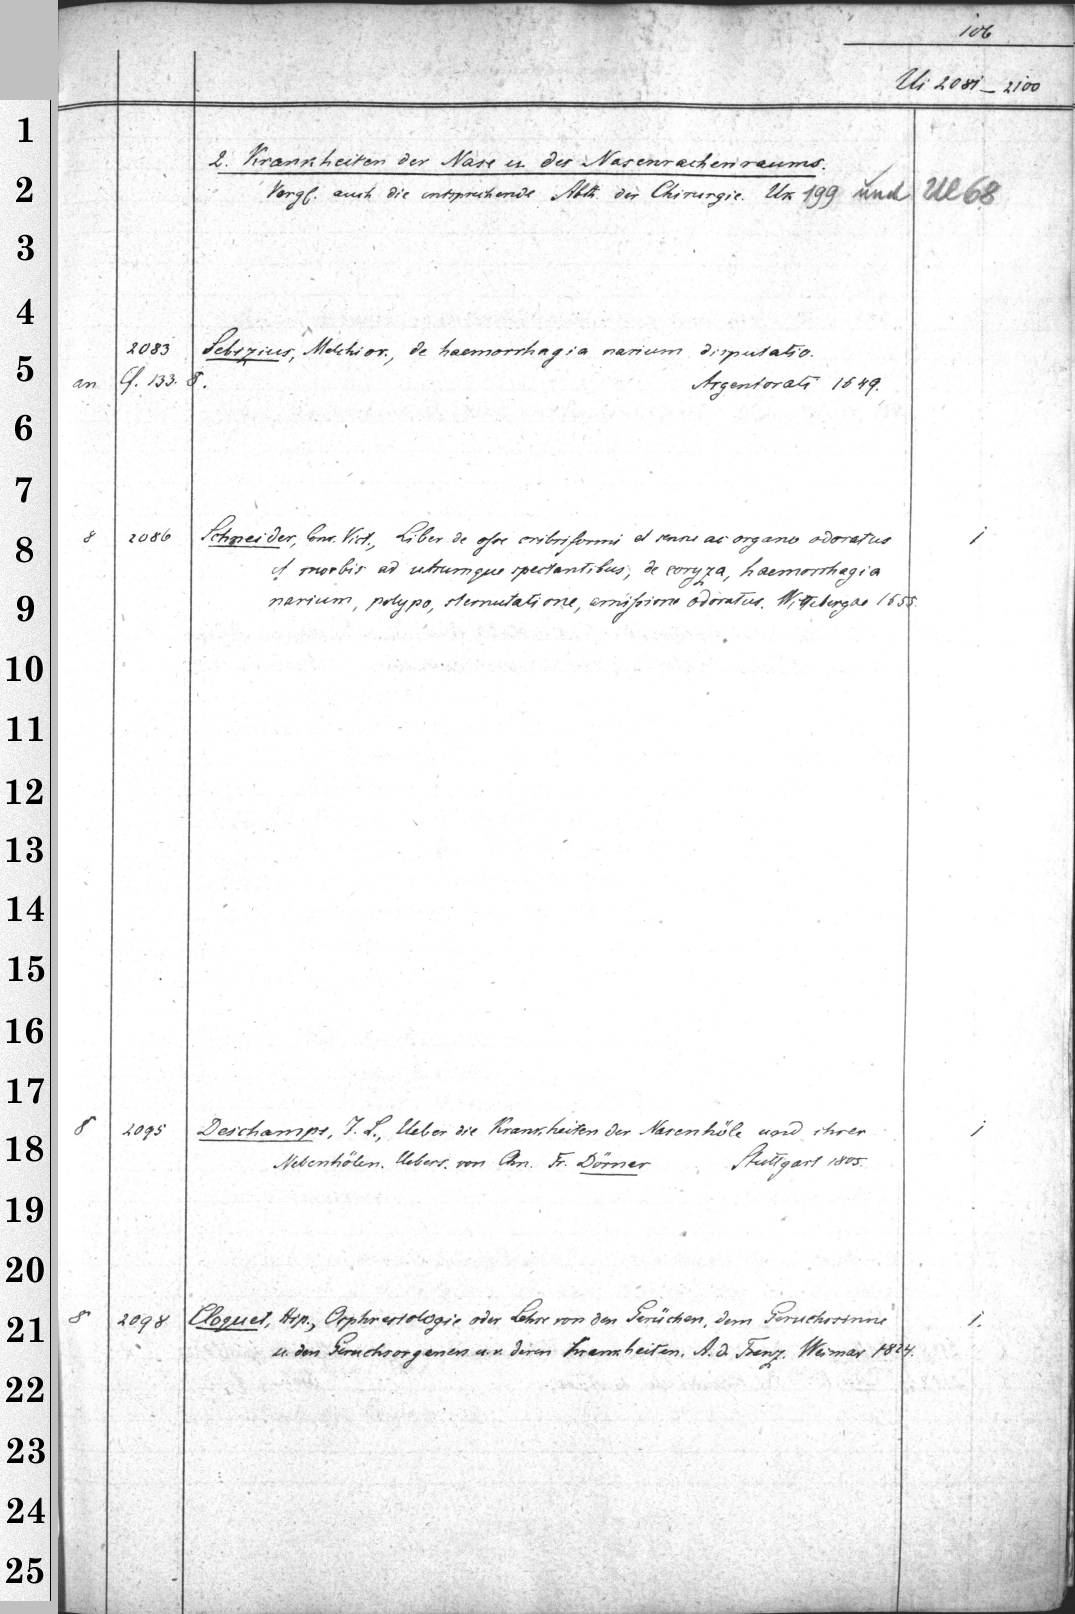 106
Ui 2081-2100
2. Krankheiten der Nase u. des Nasenrachenraums.
Vergl. auch die entsprechende Abth. der Chirurgie. Uk 199 und Ul 68
2083 Sebizius, Melchior, de haemorrhagia narium disputatio.
an Cf. 133. 8. Argentorati 1649.
8 2086 Schneider, Conr. Vict., Liber de osse cribriformi et sensu ac organo odoratus 1
et morbis ad utrumque spectantibus, de coryza, haemorrhagia
narium, polypo, sternutatione, amissione odoratus. Wittebergae 1655.
8 2095 Deschamps, J. L., Ueber die Krankheiten der Nasenhöle und ihrer 1
Nebenhölen. Uebers. von Chn. Fr. Dörner Stuttgart 1805.
8 2098 Cloquet, Hip., Osphresiologie oder Lehre von den Gerüchen, dem Geruchssinne 1.
u. den Geruchsorganen u. v. deren Krankheiten. A. d. Franz. Weimar 1824.
1
2
3
4
5
6
7
8
9
10
11
12
13
14
15
16
17
18
19
20
21
22
23
24
25